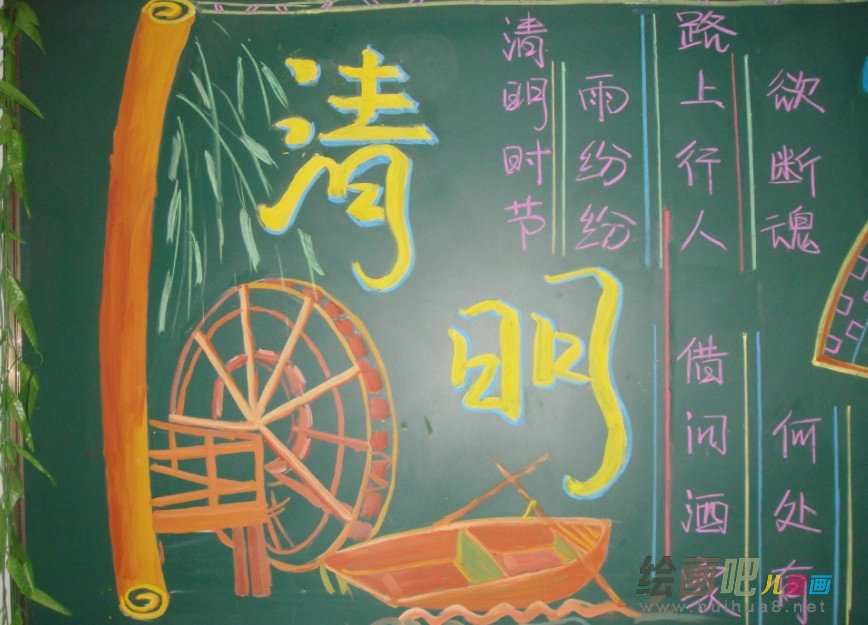 清明
清明时节
雨纷纷
路上行人
欲断魂
借问酒家
何处有
绘画吧儿童画
www.huihua8.net